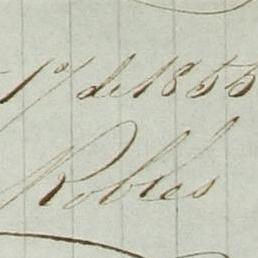 1º de 1855
Robles